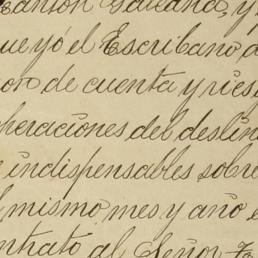 y
que yo el Escribano d
de cuenta y ries
operaciones del deslin
indispensables sobre
mismo mes y año e
ntrato al Señor